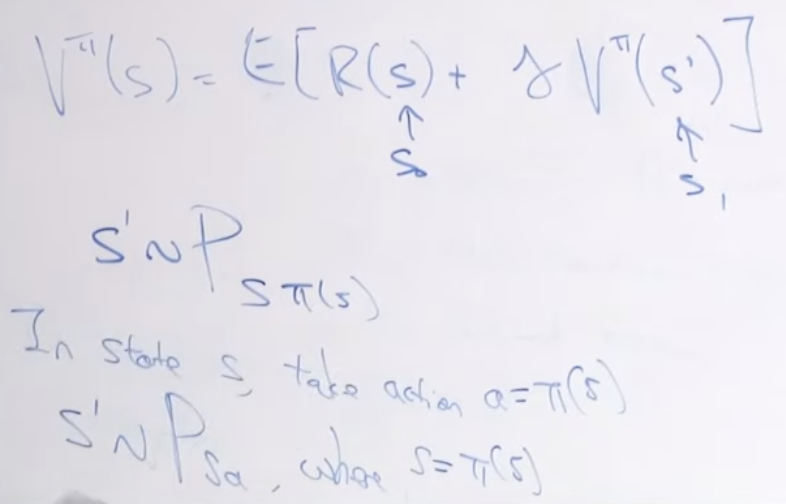 V^π(s) = E[R(s) + γ V^π(s')]
↑ ↑
s₀ s₁
s' ~ P_{sπ(s)}
In state s, take action a=π(s)
s' ~ P_{sa}, where s=π(s)